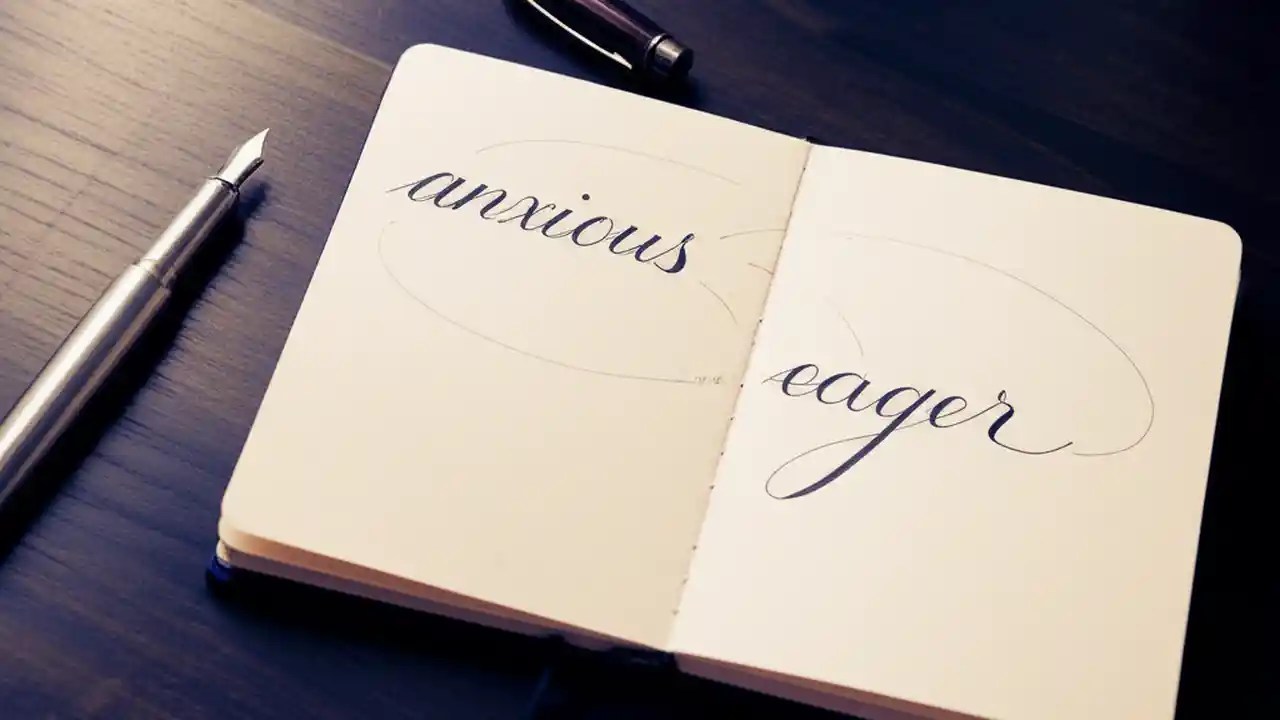 anxious
eager